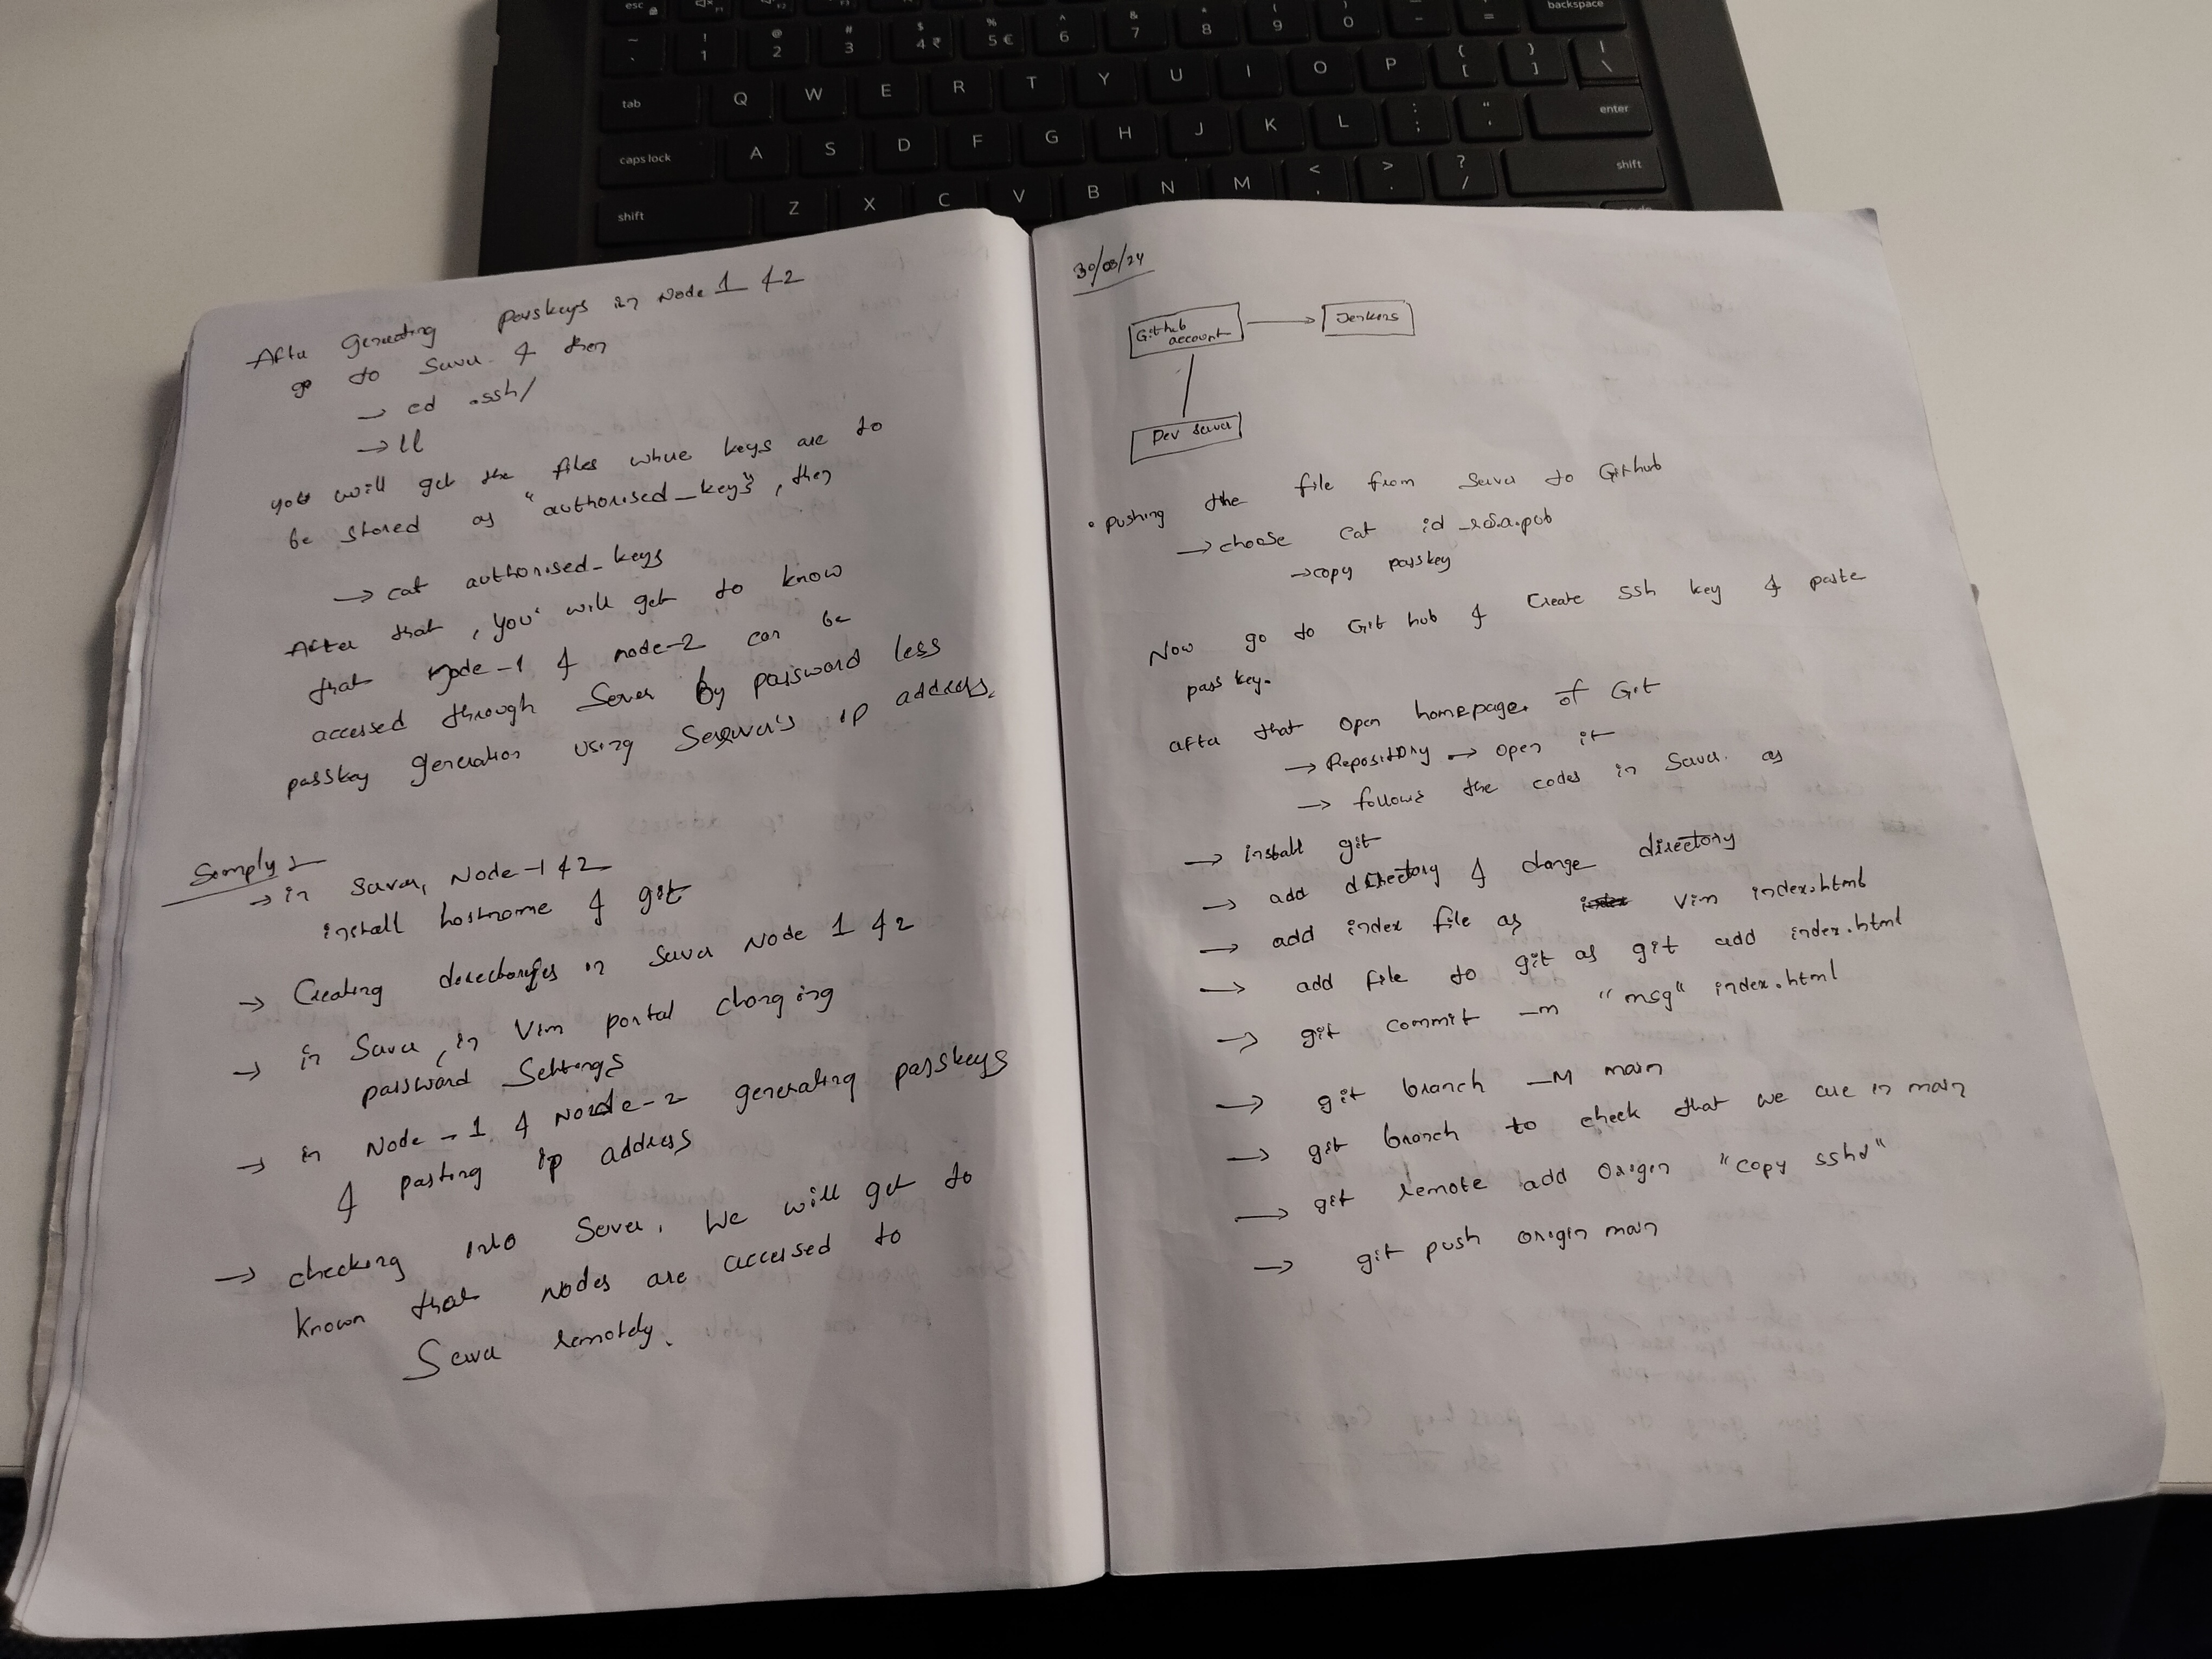 esc
~ ! @ # $ % ^ & * ( ) _ + backspace
` 1 2 3 4 ₹ 5 € 6 7 8 9 0 - =
tab Q W E R T Y U I O P { [ } ] | \
caps lock A S D F G H J K L : ; " ' enter
shift Z X C V B N M < , > . ? / shift
After generating passkeys in Node 1 & 2
go to Server & then
→ cd .ssh/
→ ll
you will get the files where keys are to
be stored as "authorised_keys", then
→ cat authorised_keys
After that, you will get to know
that node-1 & node-2 can be
accessed through Server by password less
passkey generation using Server's ip address.
Simply :-
→ in Server, Node-1 & 2
install hostname & git
→ Creating directories in Server Node 1 & 2
→ in Server, in Vim portal changing
password Settings
→ in Node-1 & Node-2 generating passkeys
& pasting ip address
→ checking into Server, we will get to
known that nodes are accessed to
Server remotely.
30/08/24
Github
account → Jenkins
Dev server
• pushing the file from Server to Github
→ choose cat id_rsa.pub
→ copy passkey
Now go to Git hub & Create ssh key & paste
pass key.
after that open homepage of Git
→ Repository → open it
→ follows the codes in Server as
→ install git
→ add directory & change directory
→ add index file as index vim index.html
→ add file to git as git add index.html
→ git commit -m "msg" index.html
→ git branch -M main
→ git branch to check that we are in main
→ git remote add origin "copy sshd"
→ git push origin main